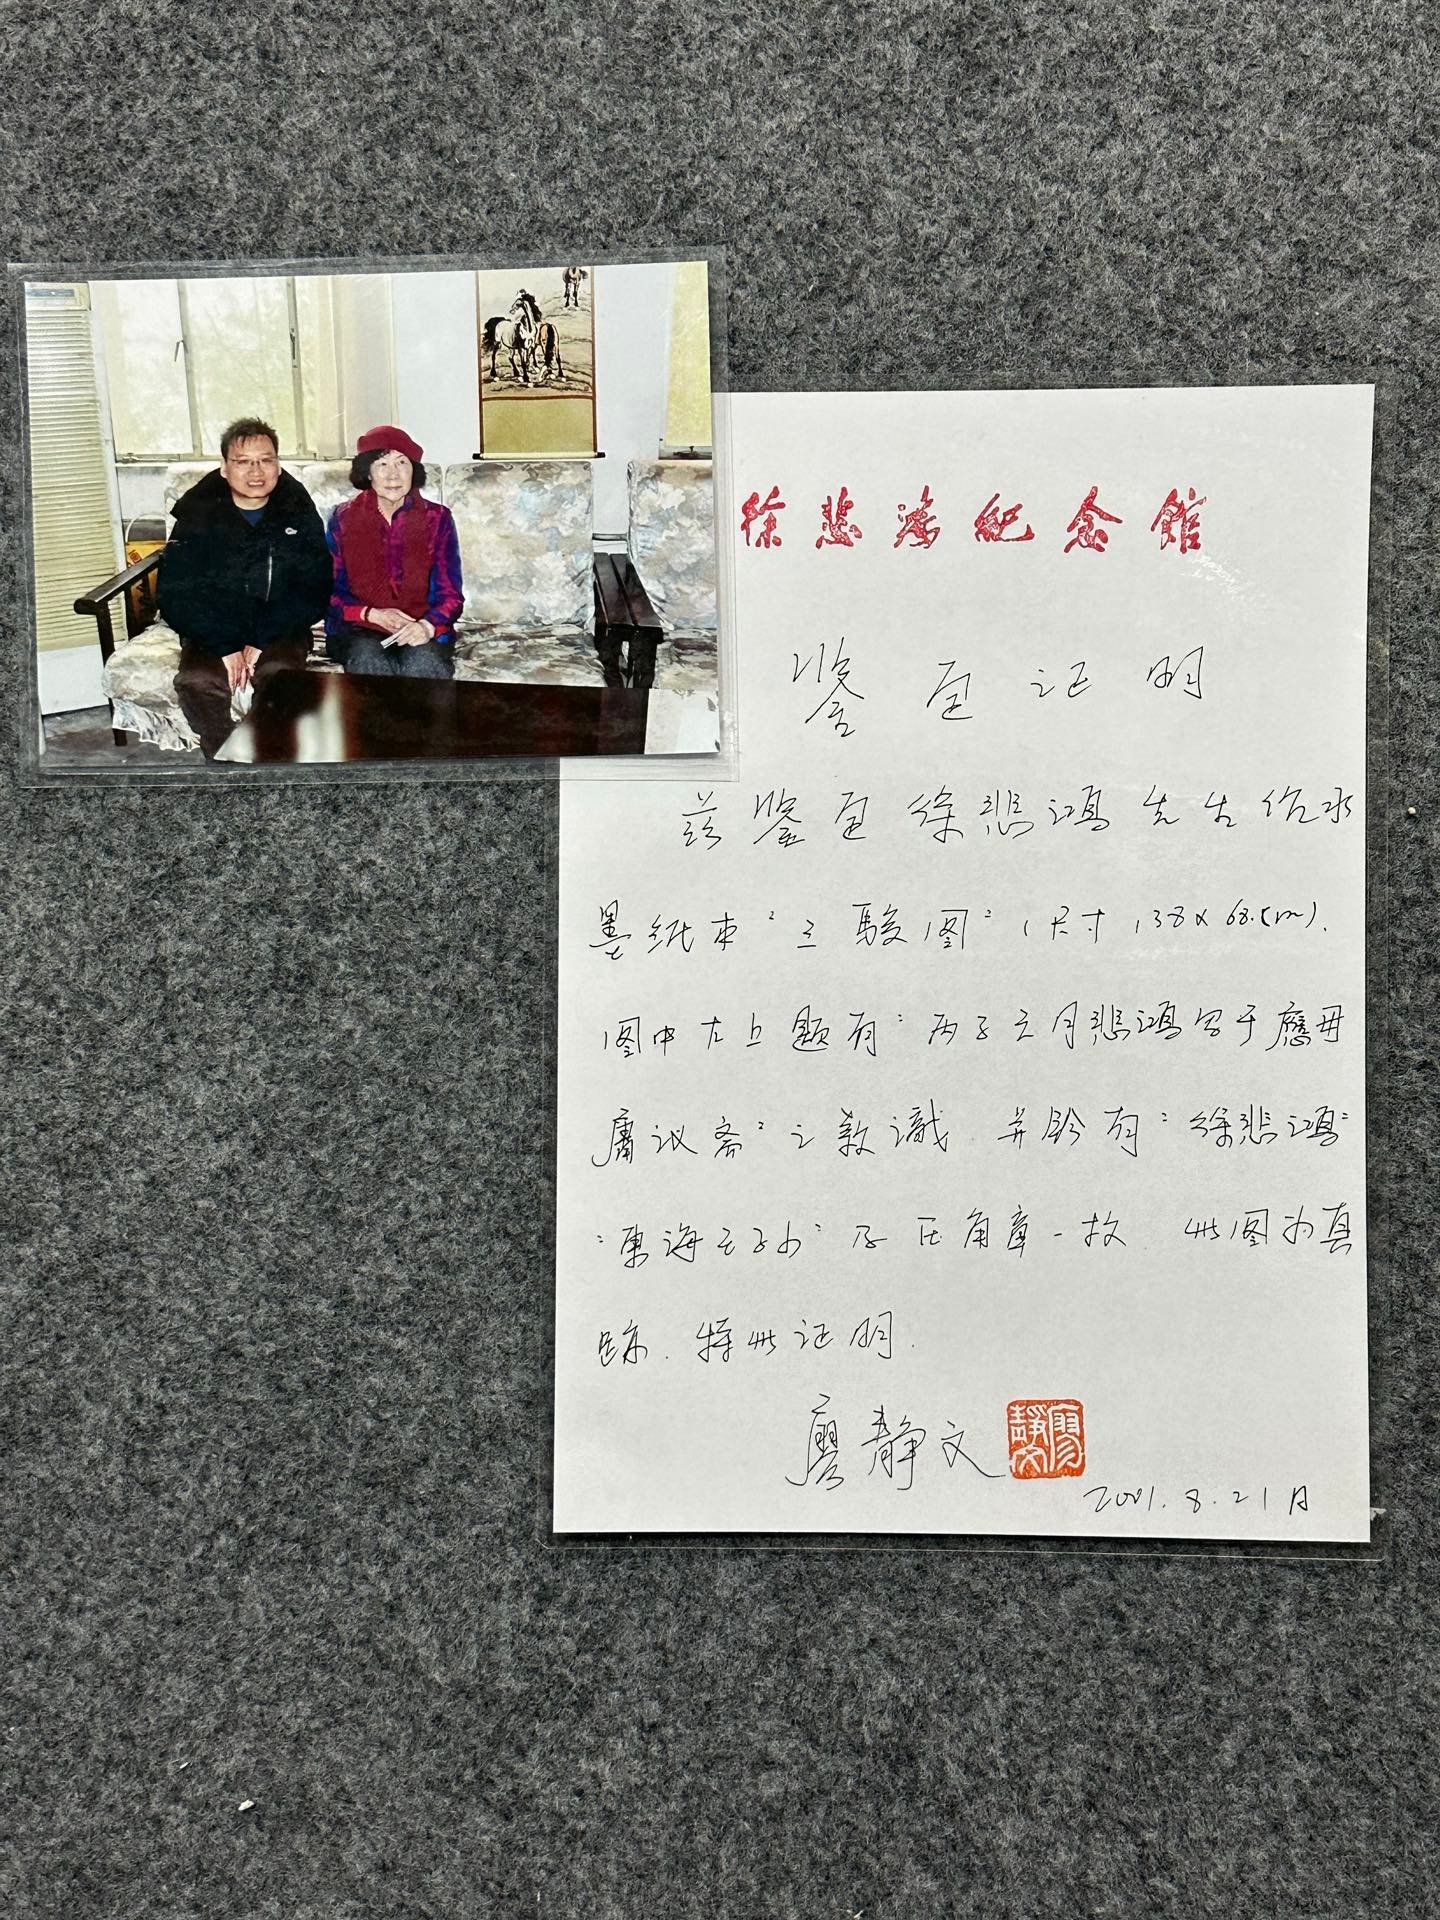 徐悲鸿纪念馆
鉴定证明
兹鉴定徐悲鸿先生绘水
墨纸本“三駿图”(尺寸138x68.cm).
图中右上题有“丙子元月悲鸿写于應毋
庸议斋”之款識.并鈐有“徐悲鸿”
“東海王孙”及压角章一枚.此图为真
跡.特此证明.
廖静文
廖靜文
2001.8.21日